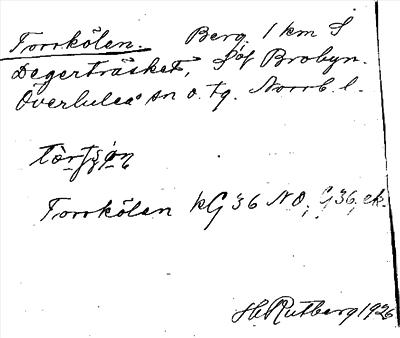 Torrkölen. Berg. 1 km S
Degerträsket, S of Brobyn.
Överluleå sn o. tg. Norrb. l.
Torrkölen kG 36 NO, G36, ek.
H Rutberg 1926